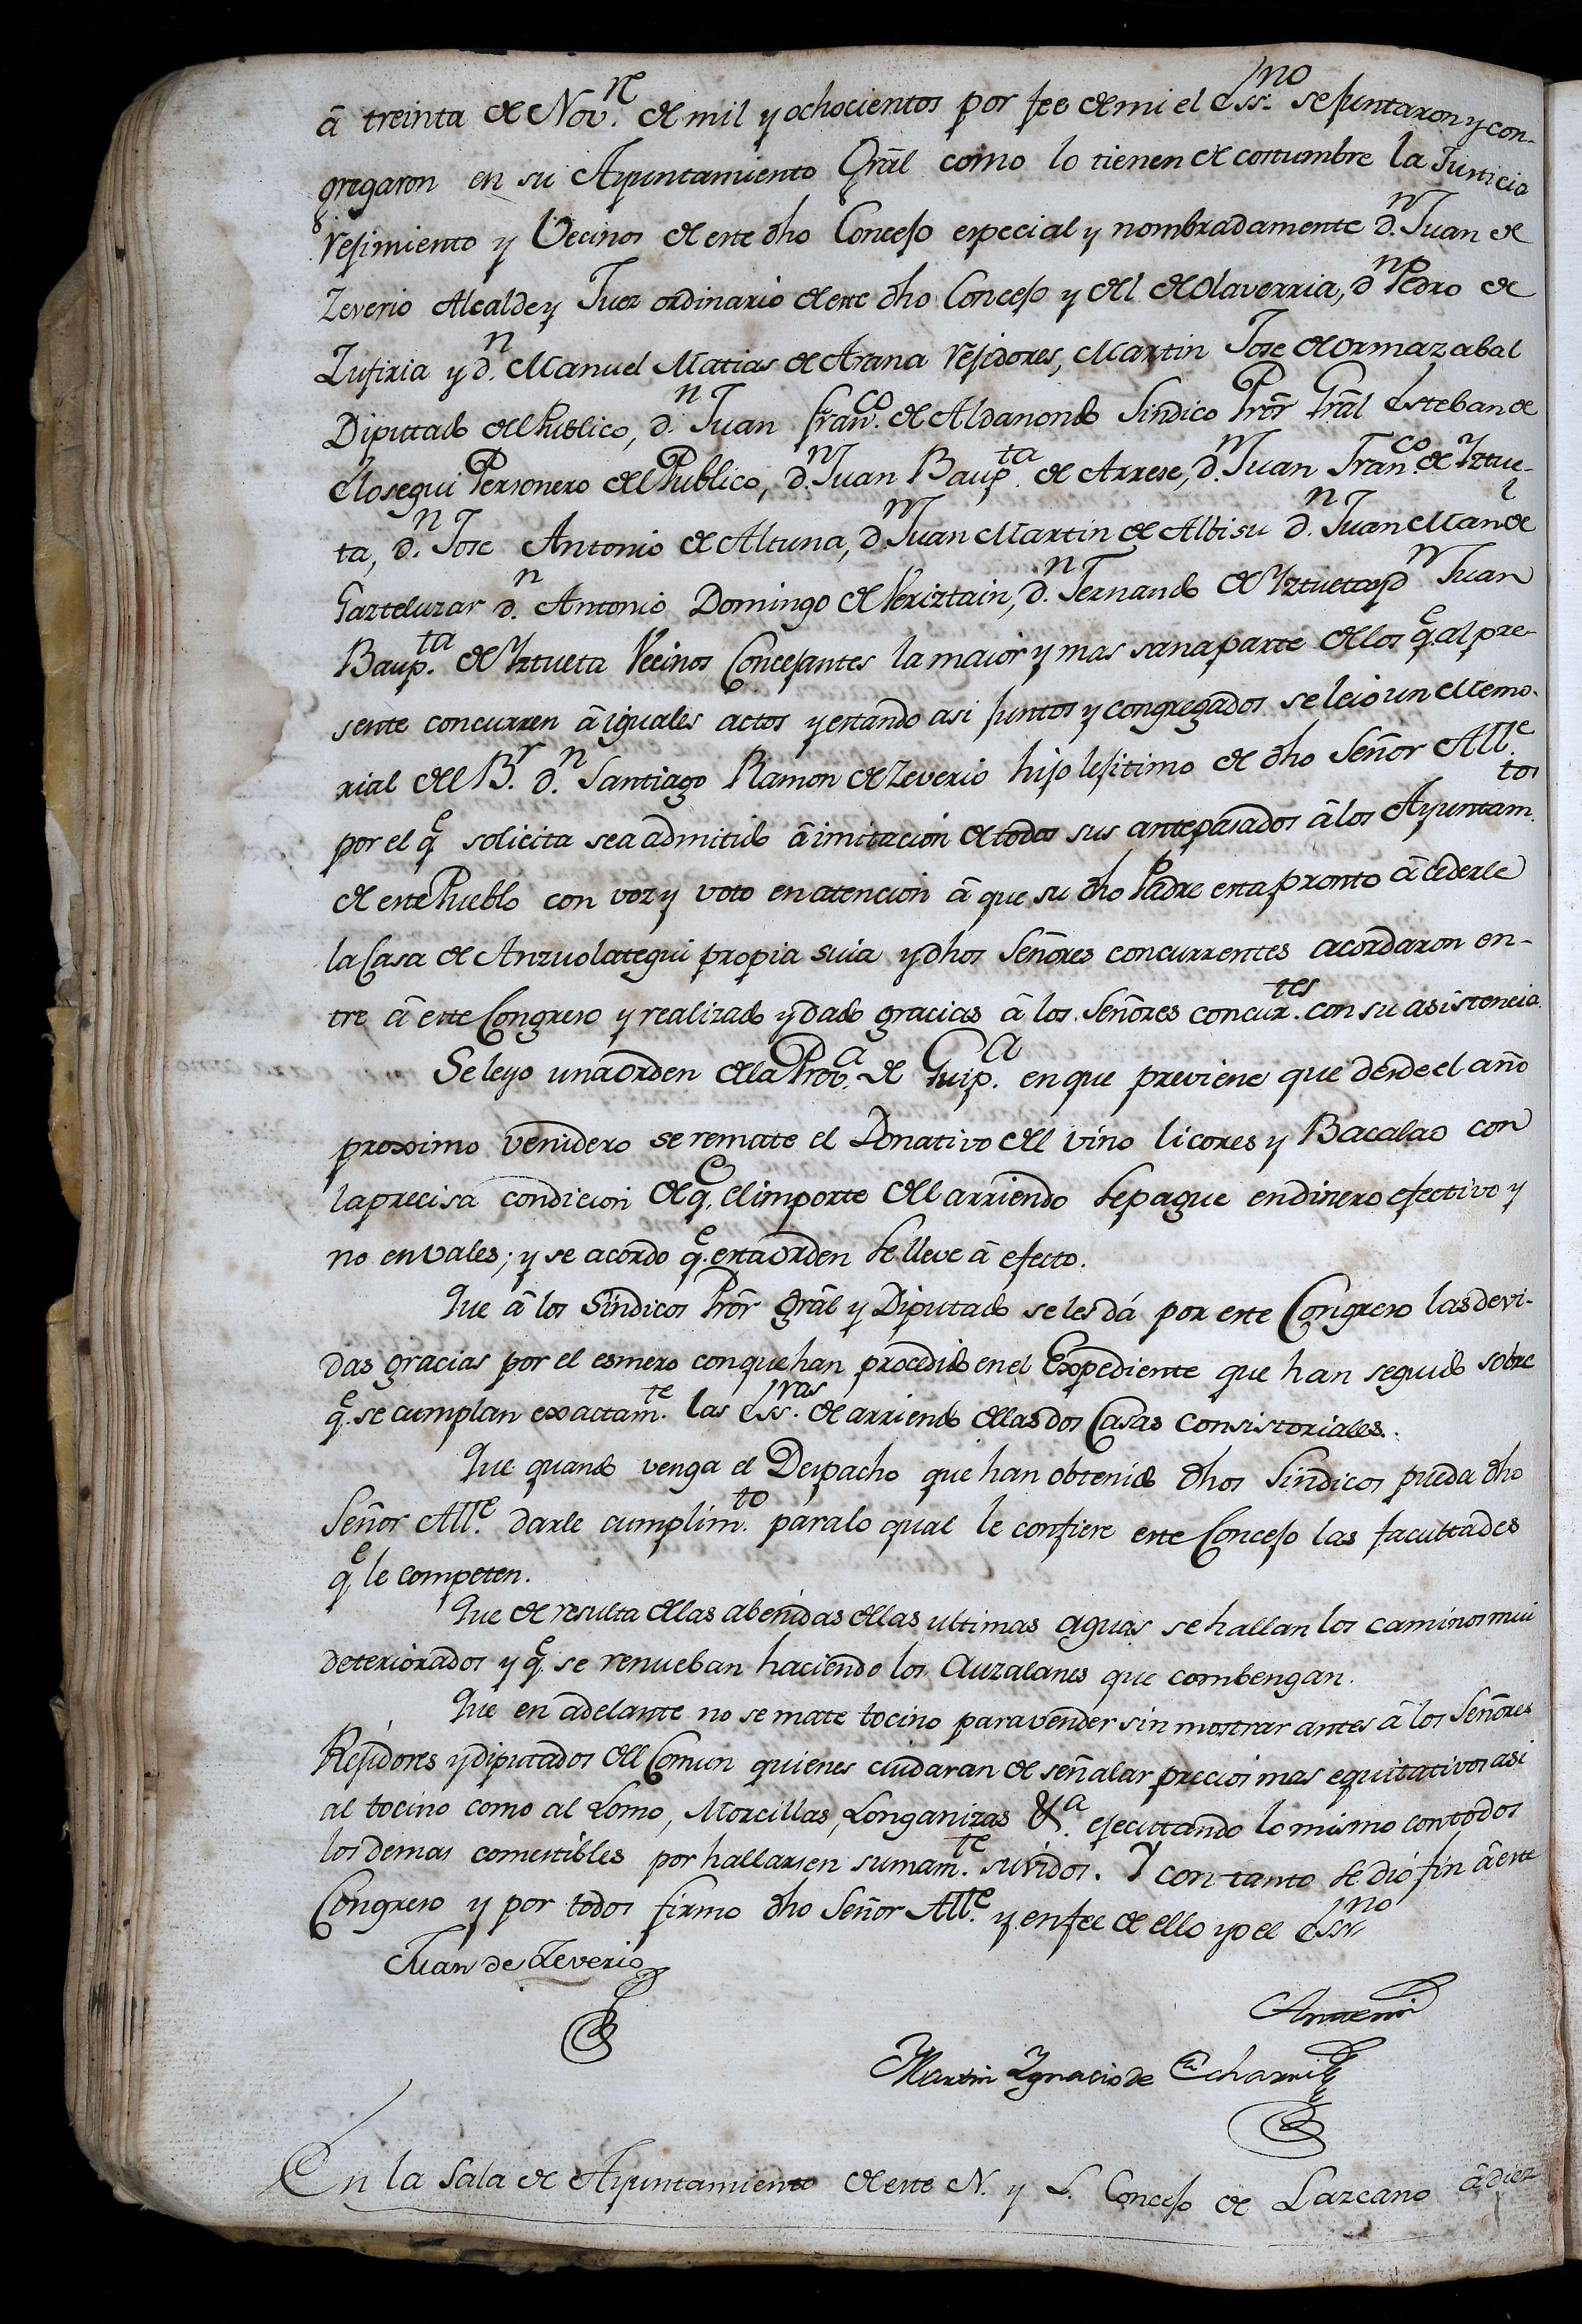 â treinta de Nov.re de mil y ochocientos por fee de mi el Ess.no se juntaron y con-
gregaron en su Ayuntamiento Gral como lo tienen de costumbre la Justicia
rejimiento y Vecinos de este dho Concejo especial y nombradamente d.n Juan de
Zeverio Alcalde y Juez ordinario de este dho Concejo y del de Olaverria, dn Pedro de
Zufiria y d.n Manuel Matias de Arana rejidores, Martin Jose de Ormazabal
Diputado del Publico, d.n Juan Fran.co de Aldanondo Sindico Pror Gral Esteban de
Elosegui Personero del Publico, d.n Juan Baup.ta de Arrese, d.n Juan Fran.co de Yztue-
ta, d.n Jose Antonio de Altuna, d.n Juan Martin de Albisu d.n Juan Man.l de
Gazteluzar d.n Antonio Domingo de Veriztain, d.n Fernando de Yztueta y dn Juan
Baup.ta de Yztueta Vecinos Concejantes la maior y mas sana parte de los q.e al pre-
sente concurren â iguales actos y estando asi juntos y congregados se leio un Memo-
rial del B.r d.n Santiago Ramon de Zeverio hijo lejitimo de dho Señor All.e
por el qe solicita sea admitido â imitacion de todos sus antepasados â los Ayuntam.tos
de este Pueblo con voz y voto en atencion â que su dho Padre esta pronto â cederle
la Casa de Anzuolategui propia suia y dhos Señores concurrentes acordaron en-
tre â este Congreso y realizado y dado gracias â los Señores concur.tes con su asistencia.
Se leyo una orden de la Prov.a de Guip.a en que previene que desde el año
proximo venidero se remate el Donativo del vino licores y Bacalao con
la precisa condicion de q.e el importe del arriendo se pague en dinero efectivo y
no en vales; y se acordo q.e esta orden se lleve â efecto.
Que â los Sindicos Pror Gral y Diputado se les dá por este Congreso las devi-
das gracias por el esmero con que han procedido en el Expediente que han seguido sobre
q.e se cumplan exactam.te las Ess.ras de arriendo de las dos Casas consistoriales.
Que quando venga el Despacho que han obtenido dhos Sindicos pueda dho
Señor All.e darle cumplim.to para lo qual le confiere este Concejo las facultades
qe le competen.
Que de resulta de las abenidas de las ultimas aguas se hallan los caminos mui
deteriorados y q.e se renueban haciendo los Auzalanes que combengan.
Que en adelante no se mate tocino para vender sin mostrar antes â los Señores
Rejidores y diputados del Comun quienes cuidaran de señalar precios mas equitativos asi
al tocino como al Lomo, Morcillas, Longanizas &.a ejecuttando lo mismo con todos
los demas comestibles por hallarsen sumam.te suvidos. Y con tanto se dió fin â este
Congreso y por todos firmo dho Señor All.e y en fee de ello yo el Ess.no
Juan de Zeverio
Ante mi
Martin Ygnacio de Echarri
En la Sala de Ayuntamiento de este N. y L. Concejo de Lazcano â diez